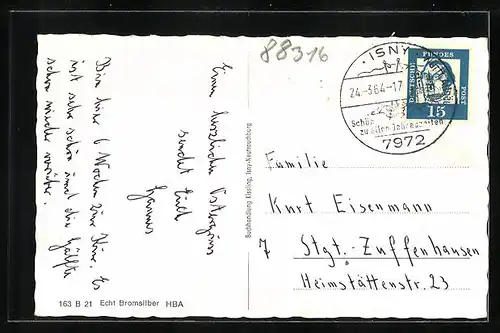 88316
Einen herzlichen Ostergruss
sendet Euch
Hannes
Bin hier 6 Wochen zur Kur. Es
ist sehr schön und die Hälfte
schon wieder vorüber.
163 B 21 Echt Bromsilber HBA
Buchhandlung Eisping, Isny-Neutrauchburg
ISNY
24.-3.64.-17
Schön
zu allen Jahreszeiten
7972
DEUTSCHE
BUNDES
POST
15
Familie
Kurt Eisenmann
7 Stgt.-Zuffenhausen
Heimstättenstr. 23